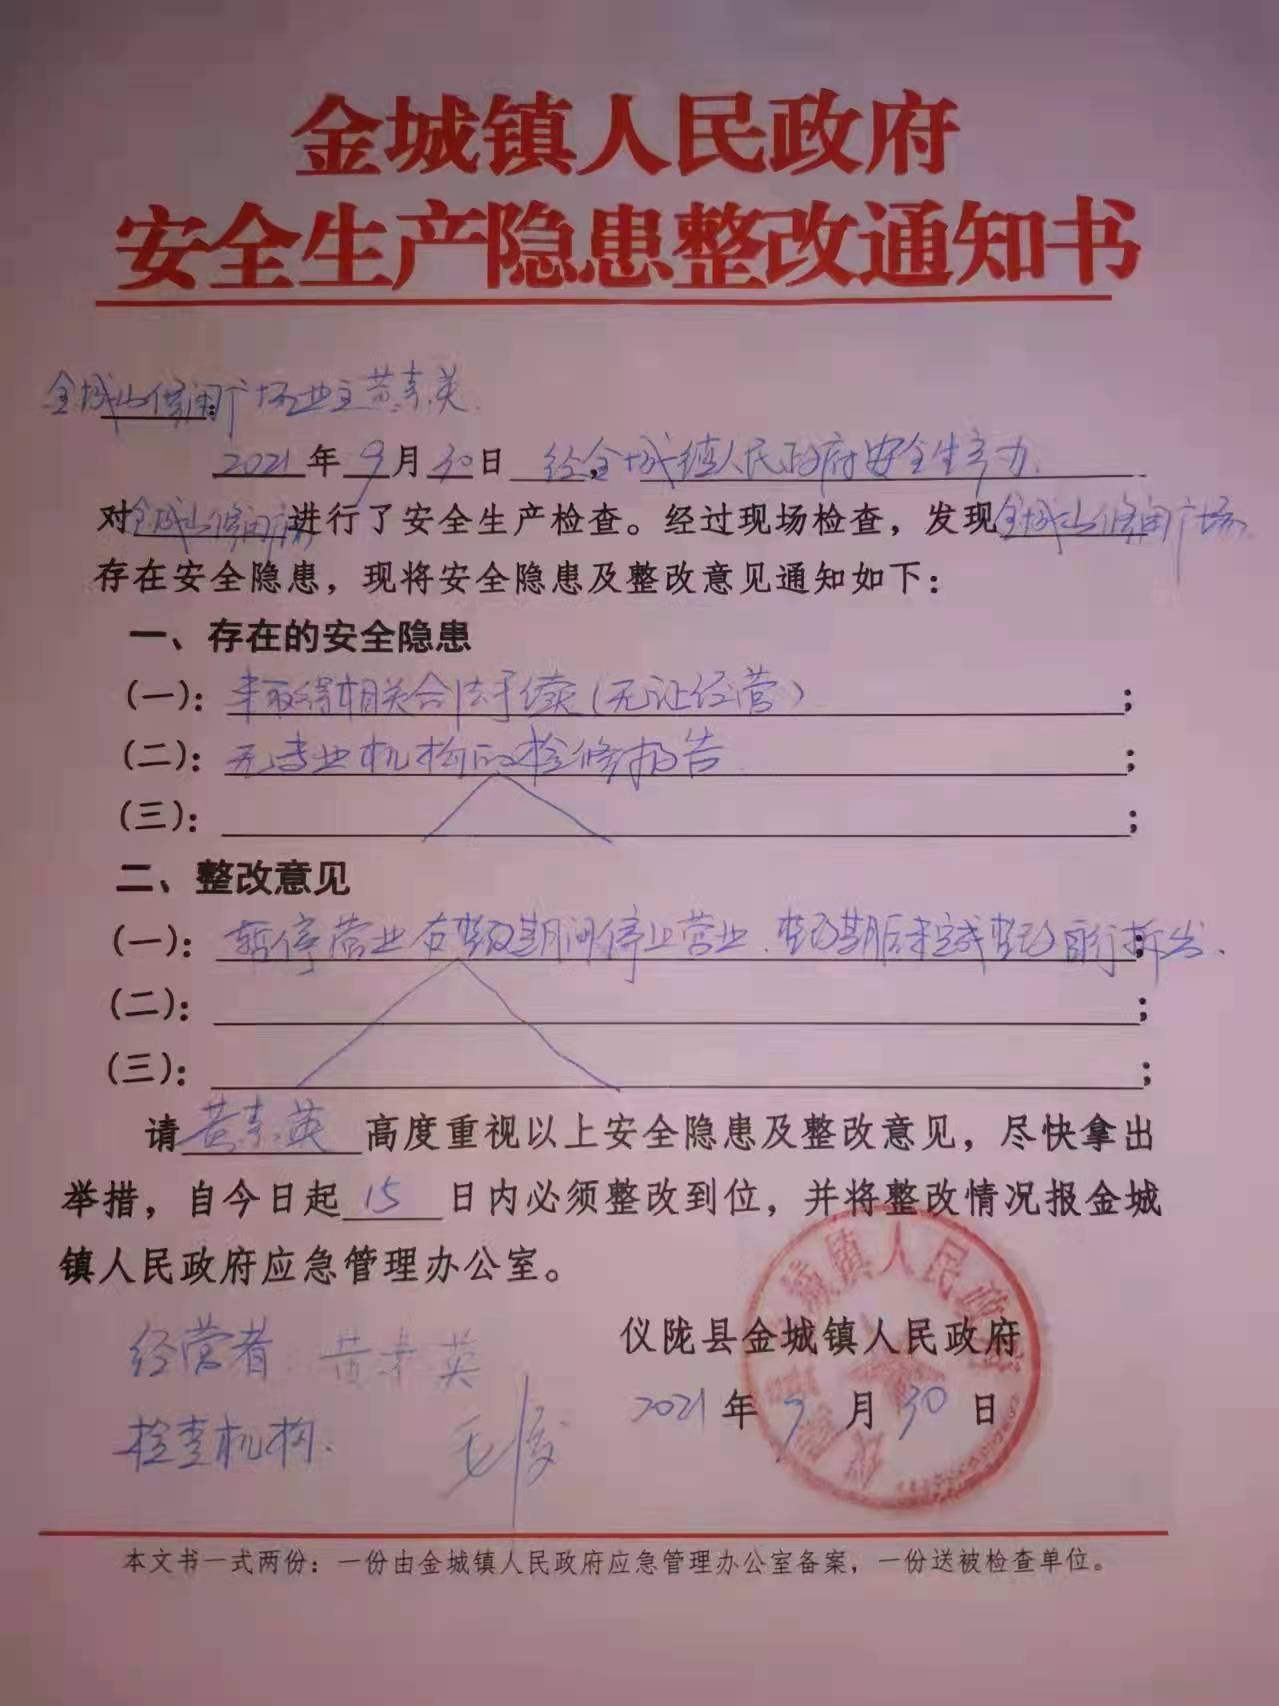 金城镇人民政府
安全生产隐患整改通知书
金城山休闲广场业主黄素英:
2021年9月30日,经金城镇人民政府安全生产办
对金城山休闲广场进行了安全生产检查。经过现场检查，发现金城山休闲广场
存在安全隐患，现将安全隐患及整改意见通知如下：
一、存在的安全隐患
(一)：未取得相关合法手续(无证经营)；
(二)：无专业机构的检修报告；
(三)：；
二、整改意见
(一)：暂停营业在整改期间停止营业、整改期后未完成整改自行拆出.；
(二)：；
(三)：；
请黄素英高度重视以上安全隐患及整改意见，尽快拿出
举措，自今日起15日内必须整改到位，并将整改情况报金城
镇人民政府应急管理办公室。
经营者:黄素英
仪陇县金城镇人民政府
2021年9月30日
检查机构:
本文书一式两份：一份由金城镇人民政府应急管理办公室备案，一份送被检查单位。